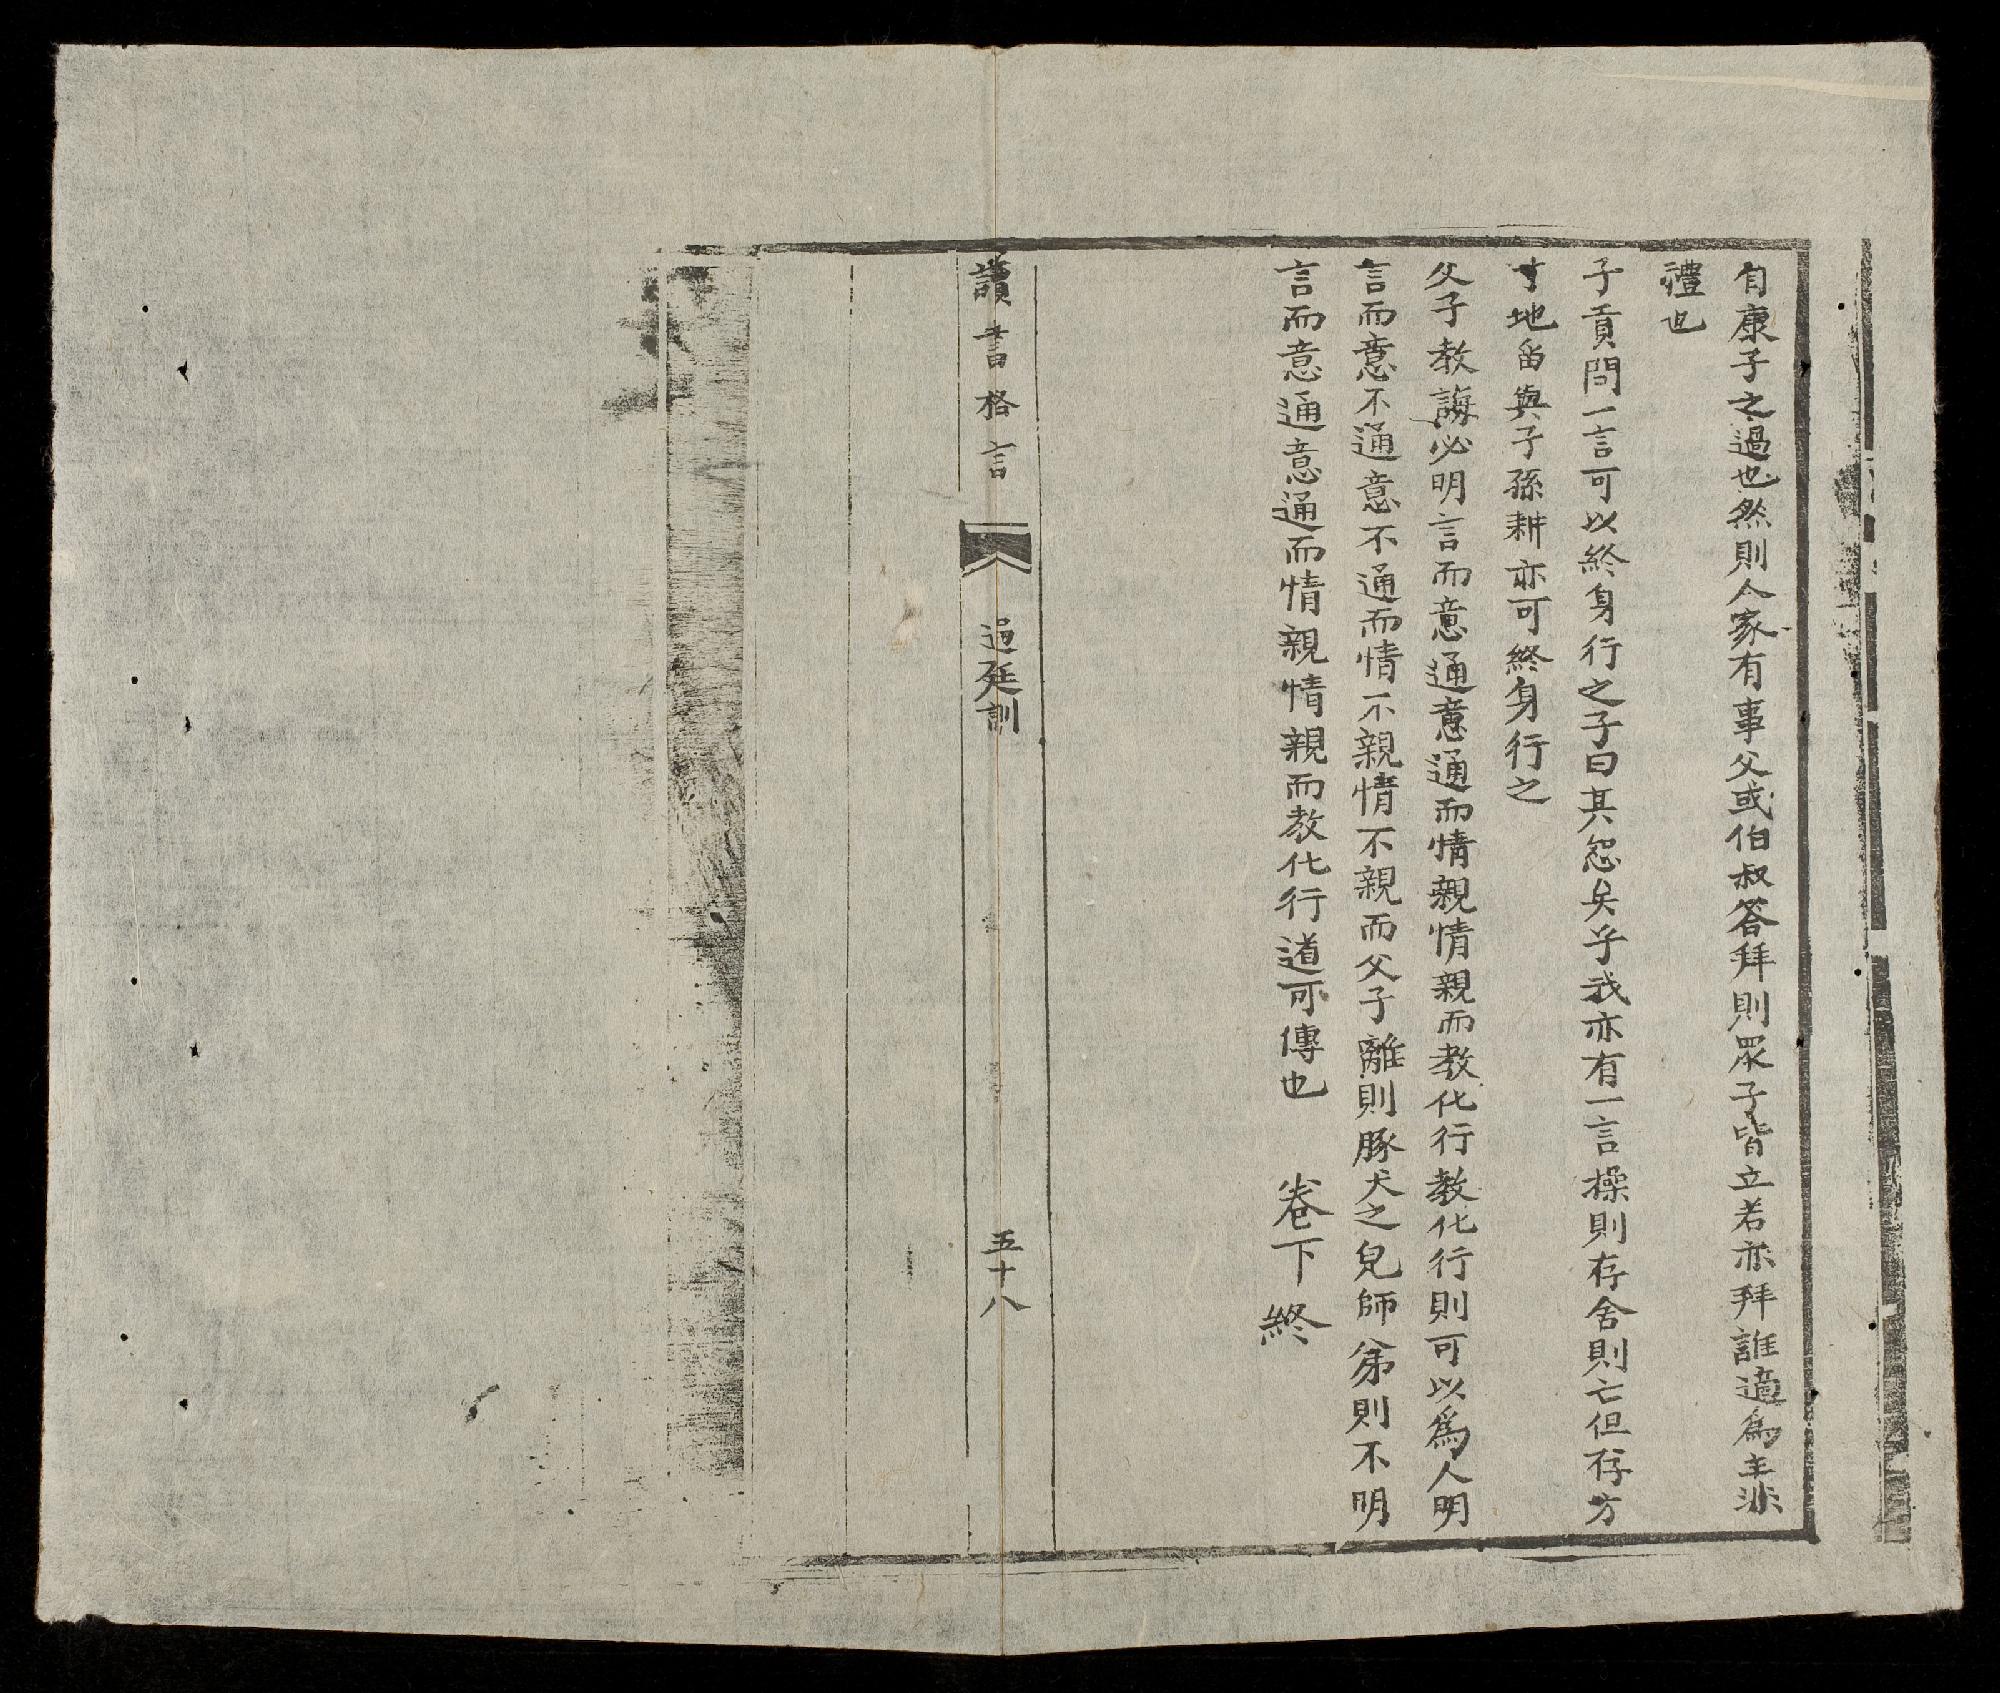 自康子之過也然則人家有事父或伯叔答拜則眾子皆立若亦拜誰適為主非
禮也
子貢問一言可以終身行之子曰其恕矣乎我亦有一言操則存舍則亡但存方
寸地留與子孫耕亦可終身行之
父子教誨必明言而意通意通而情親情親而教化行教化行則可以為人明
言而意不通意不通而情不親情不親而父子離則豚犬之兒師弟則不明
言而意通意通而情親情親而教化行道可傳也 卷下 終
讀書格言 過廷訓 五十八